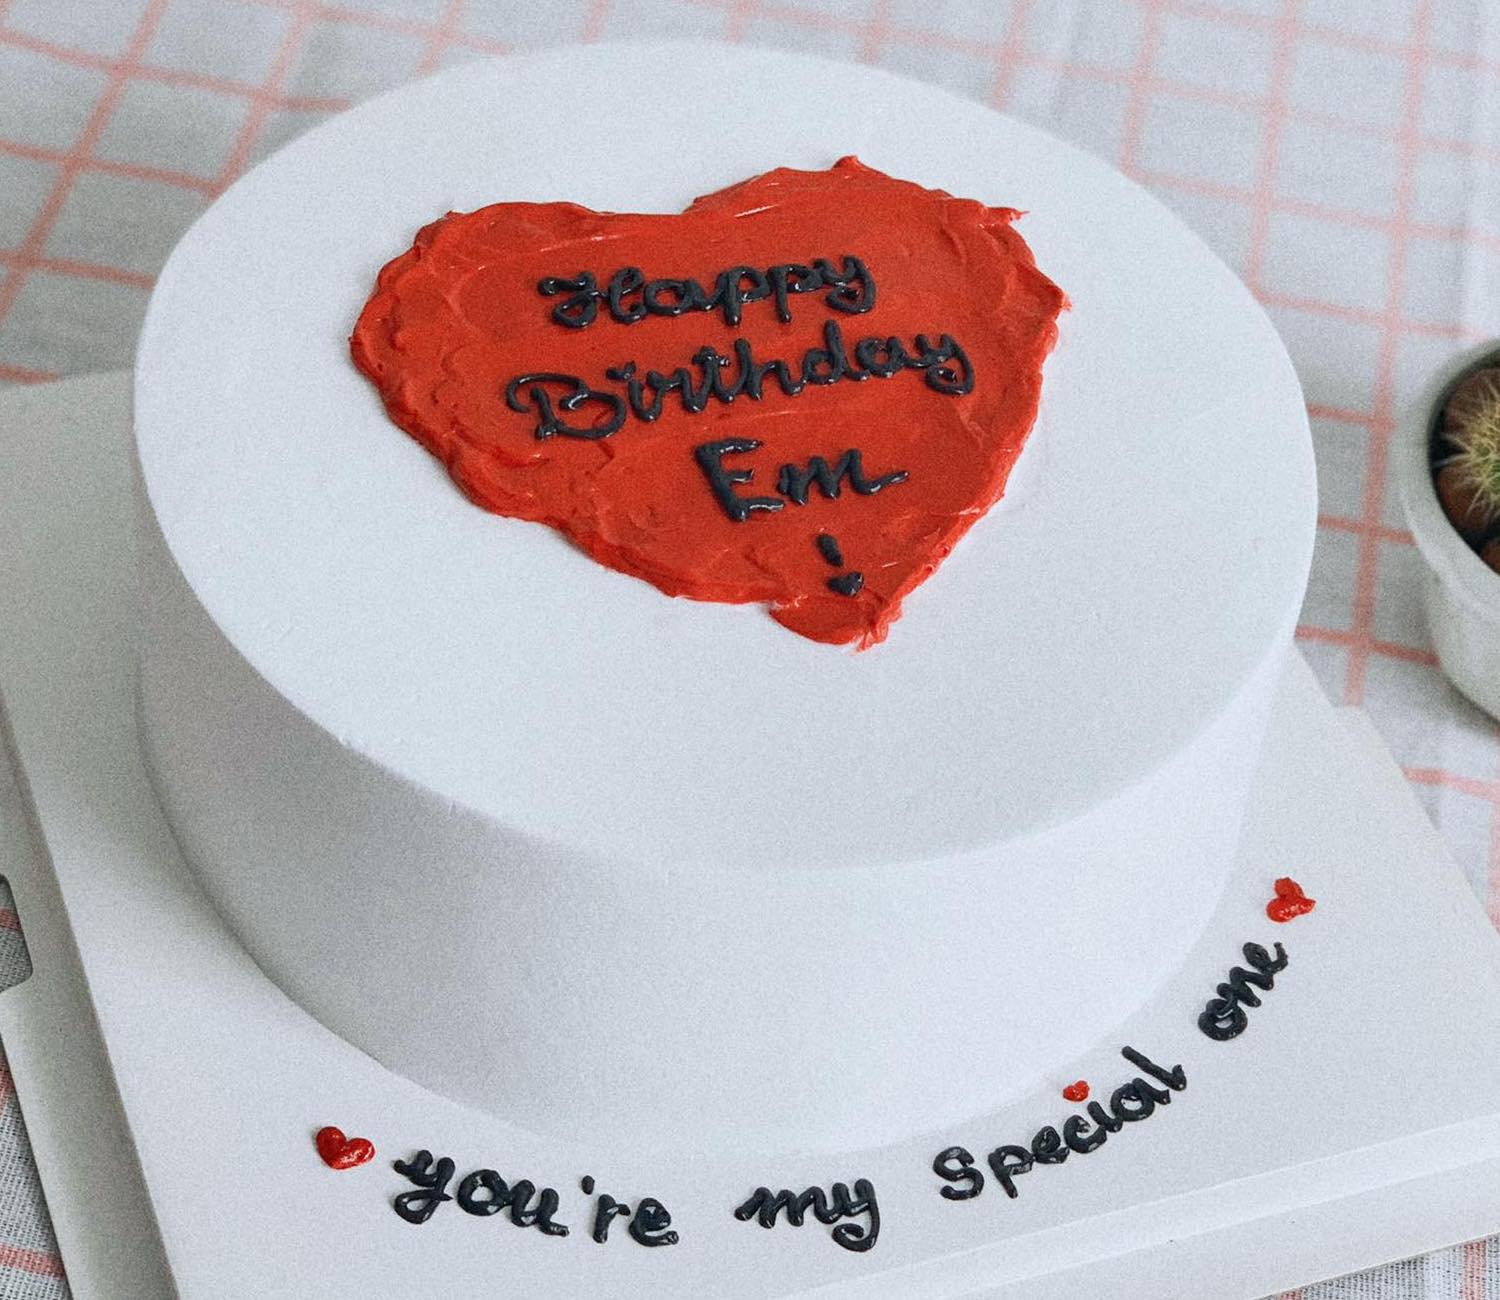 Happy
Birthday
Em
!
you're my special one